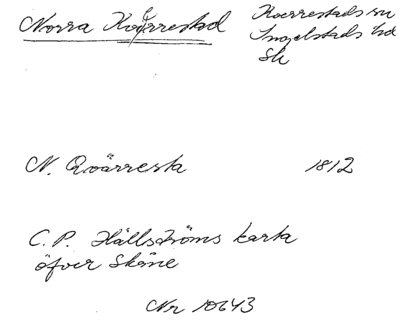 Norra Kverrestad
Kverrestads sn
Ingelstads hd
Sk
N. Qvärresta 1812
C. P. Hällströms karta
öfver Skåne
Nr 10643